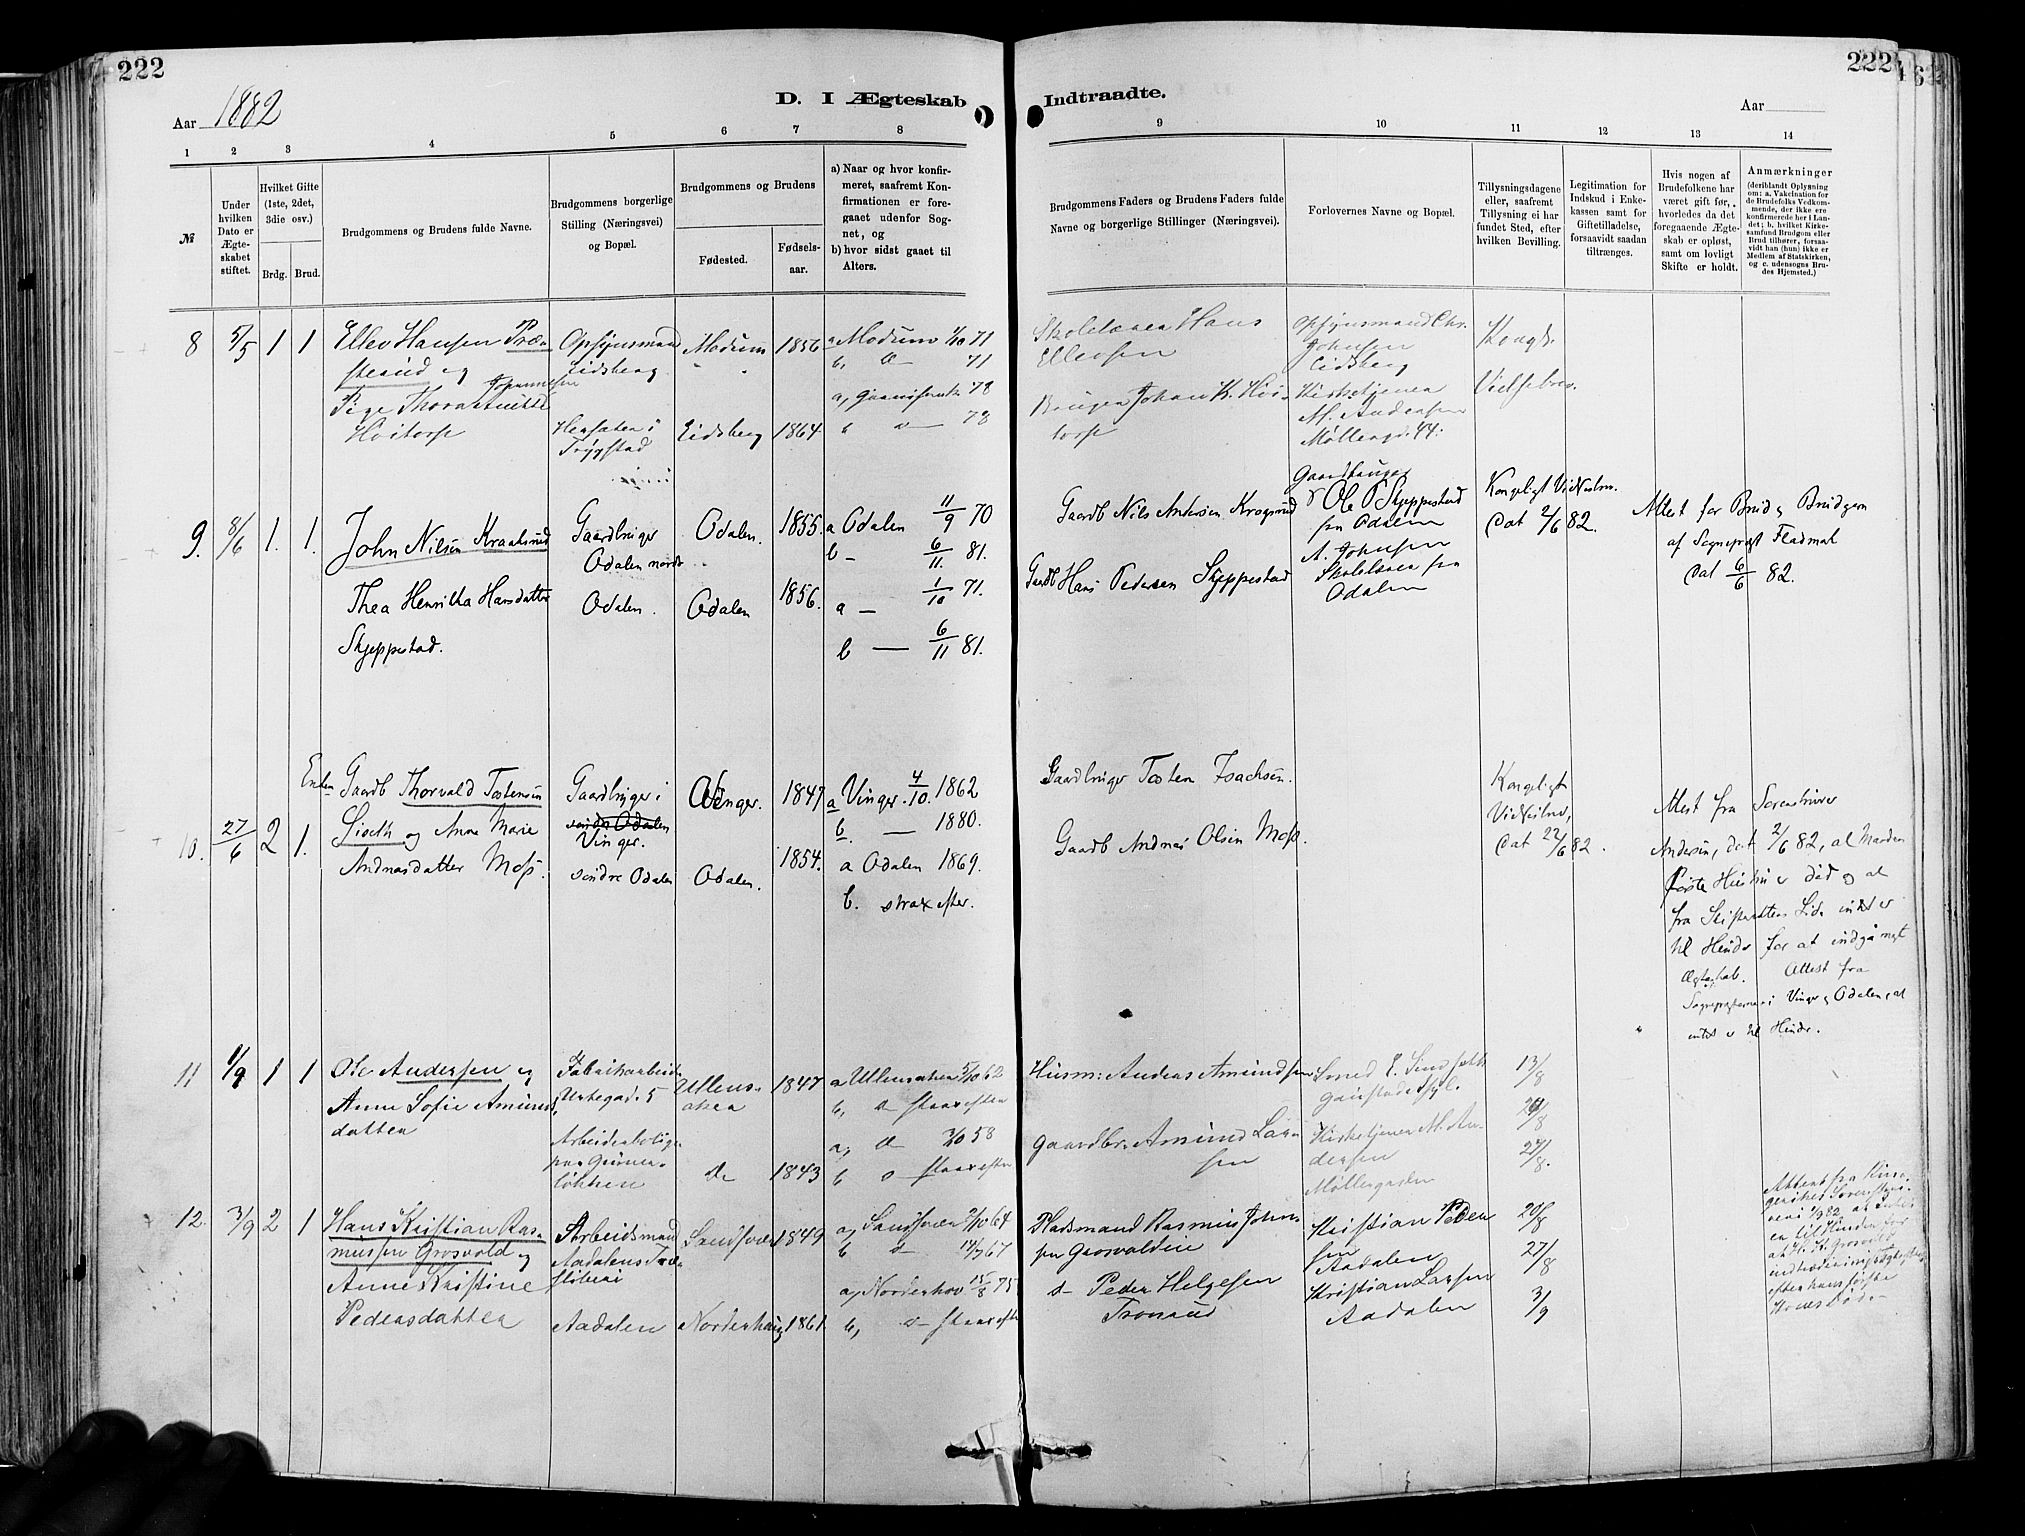 222
222
Aar 1882
D. I Ægteskab
Indtraadte.
Aar
1 2 3 4 5 6 7 8 9 10 11 12 13 14
№
Under
hvilken
Dato er
Ægte-
skabet
stiftet.
Hvilket Gifte
(1ste, 2det,
3die osv.)
Brdg. Brud.
Brudgommens og Brudens fulde Navne.
Brudgommens borgerlige
Stilling (Næringsvei)
og Bopæl.
Brudgommens og Brudens
Fødested.
Fødsels-
aar.
a) Naar og hvor konfir-
meret, saafremt Kon-
firmationen er fore-
gaaet udenfor Sog-
net, og
b) hvor sidst gaaet til
Alters.
Brudgommens Faders og Brudens Faders fulde
Navne og borgerlige Stillinger (Næringsvei).
Forlovernes Navne og Bopæl.
Tillysningsdagene
eller, saafremt
Tillysning ei har
fundet Sted, efter
hvilken Bevilling.
Legitimation for
Indskud i Enke-
kassen samt for
Giftetilladelse,
forsaavidt saadan
tiltrænges.
Hvis nogen af
Brudefolkene har
været gift før,
hvorledes da det
foregaaende Ægte-
skab er opløst,
samt om lovligt
Skifte er holdt.
Anmærkninger
(deriblandt Oplysning
om: a. Vakcination for
de Brudefolks Vedkom-
mende, der ikke ere
konfirmerede her i Lan-
det; b. hvilket Kirke-
samfund Brudgom eller
Brud tilhører, forsaa-
vidt han (hun) ikke er
Medlem af Statskirken,
og c. udensogns Bru-
des Hjemsted.)
8 5/5 1 1
Ellev Hansen Præ-
sterud og
Pige Thora Anette
Johannesen
Høitorp
Opsynsmand
Eidsberg
Hersæter i
Trygstad
Modum 1856
Eidsberg 1864
a Modum 1/10 71
b, d — 71
78
b d — 78
Skolelærer Hans
Ellevsen
Johan K. Høi-
torp
Opsynsmand Chr.
Johnsen
Eidsberg
Kirketjener
M. Andersen
Møllergd. 44.
Kongl.
Vielsebrev.
9. 8/6 1. 1.
John Nilsen Kraaksrud
Thea Henrikka Hansdatter
Skjeppestad.
Gaardbruger
Odalen nordr
Odalen.
Odalen. 1855.
Odalen 1856.
a Odalen 11/9 70
b — 6/11 81.
a — 1/10 71.
b — 6/11 81.
Gaardb Nils Andersen Krogsrud
Gaardb Hans Pedersen Skjeppestad
Gaardbruger
Ole P Skjeppestad
fra Odalen
A. Johnsen
Skolelærer fra
Odalen
Kongeligt Vielsesbrev.
Dat 2/6 82.
Attest for Brud og Brudgom
af Sognepræst Fladmark
Dat 6/6 82.
10. 27/6 2 1.
Enkem Gaardb Thorvald Tostensen
Liseth og Anne Marie
Andreasdatter Moss.
Gaardbruger i
søndre Odalen
Vinger.
søndre Odalen
Vinger. 1847
Odalen. 1854.
a Vinger. 4/10. 1862
b. — 1880.
a Odalen 1869.
b. strax efter.
Gaardbruger Tosten Isachsen.
Gaardb Andreas Olsen Moss.
Kongeligt
Vielsesbrev,
Dat 22/6 82.
Attest fra Sorenskriver
Andersen, dat 2/6 82, at Manden
første Hustru er død og at
fra Skifterettens Side intet er
til Hinder for at indgå nyt
Ægteskab. Attest fra
Sognepræsterne i Vinger og Odalen, at
intet er til Hinder.
11 1/9 1 1
Ole Andersen og
Anne Sofie Amund-
datter
Fabrikarbeider
Urtegad. 5
Arbeiderbolig
paa Grüner-
løkken
Ullens-
aker 1847
do 1843
a Ullensaker 5/10 62
b, d strax efter
a, d 3/10 58
b d strax efter
Husm: Andreas Amundsen
Gaardbr. Amund Lar-
sen
Smed
Kirketjener M. An-
dersen
Møllergaden
13/8
20/8
27/8.
12. 3/9 2 1
Hans Kristian Ras-
mussen Grosvold og
Anne Kristine
Pedersdatter
Arbeidsmand
Aadalens Træ-
sliberi
Aadalen
Sandsvær 1849
Norderhoug 1861
a, Sandsvær 2/10 64
b d 14/7 67
a, Norderhov 15/8 75
b, d strax efter
Pladsmand Rasmus Johan-
sen Grosvoldeie
d— Peder Helgesen
Tronsrud
Kristian Peder-
sen
Aadalen
Kristian Larsen
Aadalen
20/8
27/8
3/9
Attest fra Ringe-
rikes Sorenskri-
veri 1/9 82 at Intet
er til Hinder for
at H. K. Grosvold
indtræder i nyt Ægteskab
efter hans første
Kones Død.